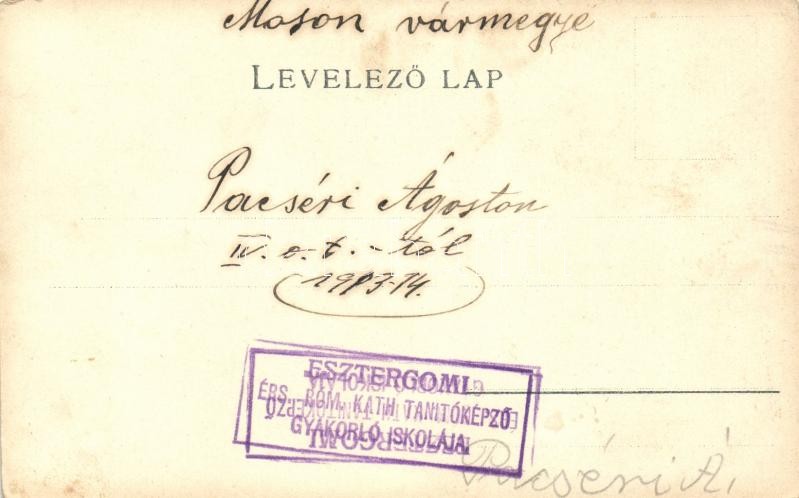 Moson vármegye
LEVELEZŐ LAP
Pacséri Ágoston
IV. o. t. - tól
1913-14.
ESZTERGOMI
ÉRS. RÓM. KATH. TANITÓKÉPZŐ
GYAKORLÓ ISKOLÁJA
Pacséri Á.